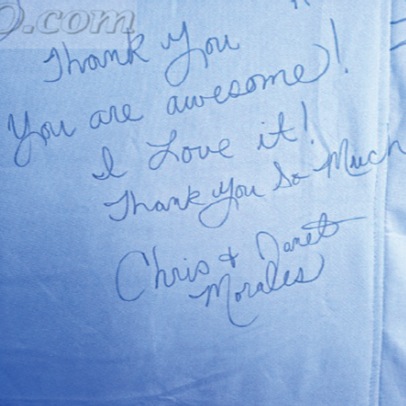 O.com
Thank You
You are awesome!
I Love it!
Thank You So Much
Chris & Janet
Morales